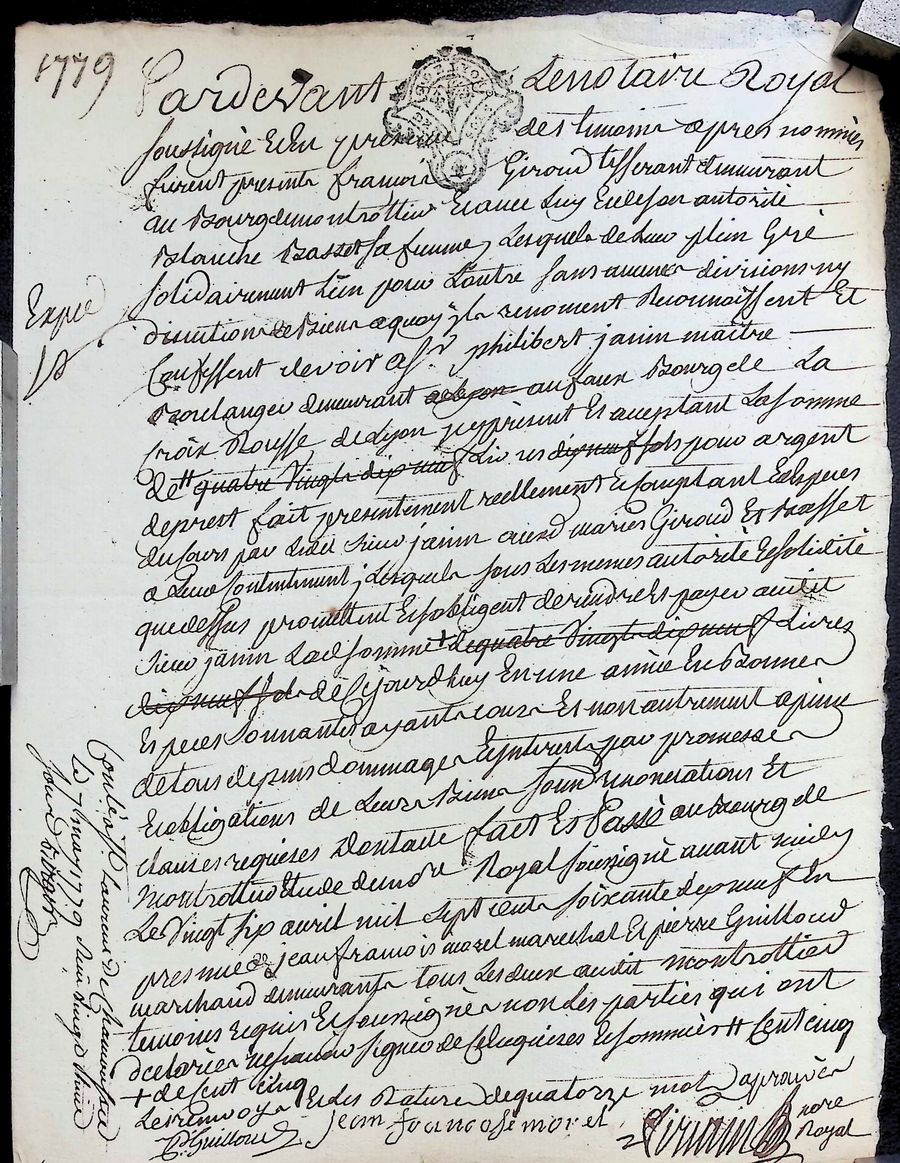 1779
Pardevant Le notaire Royal
soussigné Et En presence des temoins apres nommés
furent presents francois Giroud tisserant demeurant
au Bourg de montrottier Et avec Luy Et de son autorité
Blanche Basset sa femme, Lesquels de Leur plein Gré
solidairement L'un pour L'autre sans aucunes divisions ny
discution de Biens a quoy ils renoncent Reconnoissent Et
Confessent devoir a sr. philibert janin maitre
Boulanger demeurant a Lyon au faux Bourg de La
Croix Rousse de Lyon icy present Et aceptant La somme
de ++ quatre vingts dix neuf Livres dix neuf sols pour argent
de prest fait presentement reellement Et comptant En Especes
du cours par Ledit sieur janin auxd. maries Giroud Et Basset
a Leur contentement, Lesquels sous Les memes autorité Et solidité
que dessus promettent Et s'obligent de rendre Et payer audit
sieur janin Lad. somme + de quatre vingts dix neuf Livres
dix neuf sols de Ce jourd'huy En une année En Bonnes
Especes sonnantes ayants cours Et non autrement a peine
de tous depens dommages Et interets par promesses
Et obligations de Leurs Biens renonciations Et
clauses requises Dont acte fait Et Passé au Bourg de
montrottier Etude du nore Royal soussigné avant midy
Le vingt six avril mil sept cents soixante dix neuf En
presence de jean francois morel marechal Et pierre Guilloud
marchand demeurants tous Les deux audit montrottier
temoins requis Et soussignés non Les parties qui ont
declarées ne savoir signer de Ce Enquises Et sommées ++ Cent cinq
+ de Cent cinq
Les renvoys Et des Rature de quatorze mots aprouvés
P. Guilloud jean francose morel
nore
Royal
Expié
Con.lé a St Laurent de Chamousset
Le 7 may 1779 Reçu vingt